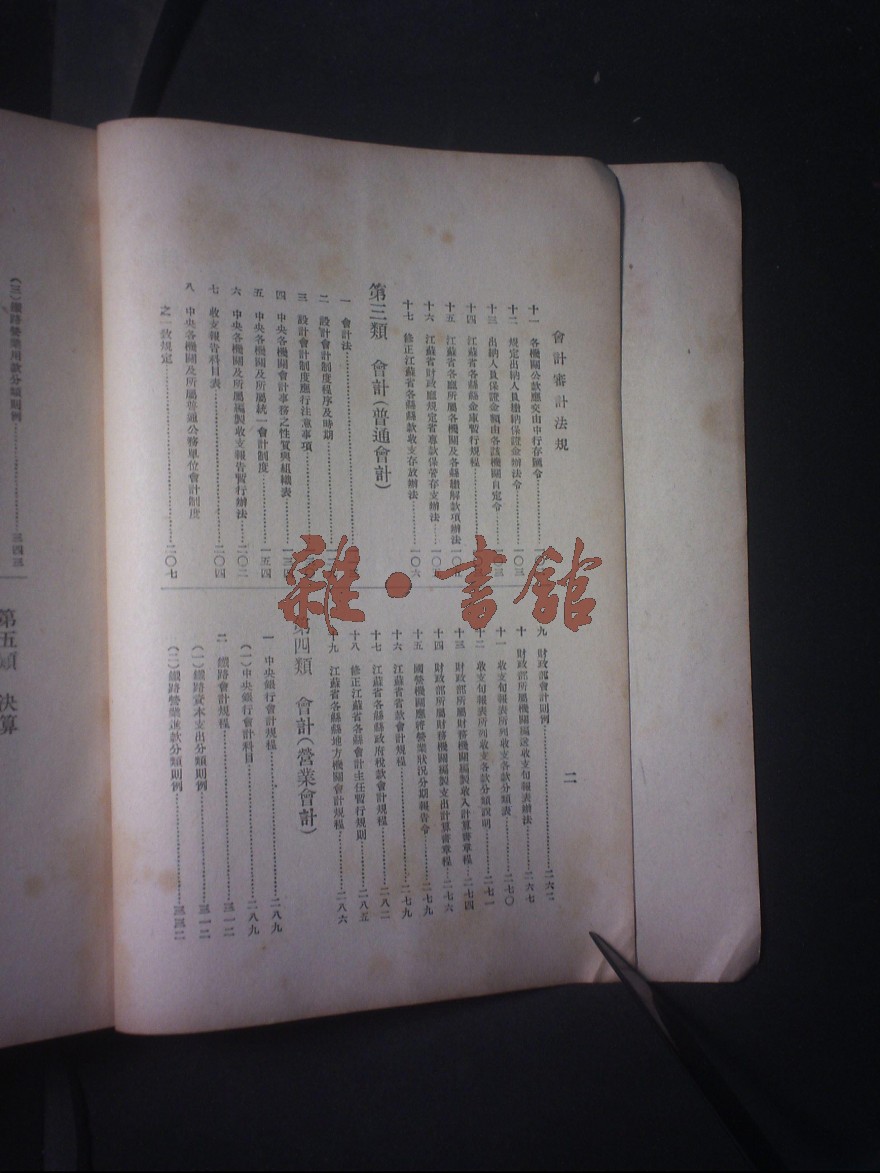 會計審計法規
二
十一 各機關公款應交由中行存匯令
十二 規定出納人員繳納保證金辦法令……一〇三
十三 出納人員保證金額由各該機關自定令
十四 江蘇省各縣縣金庫暫行規程
十五 江蘇省各廳所屬各機關及各縣繳解款項辦法
十六 江蘇省財政廳規定省專款保管存支辦法……一〇五
十七 修正江蘇省各縣縣款收支存放辦法……一〇六
第三類 會計(普通會計)
一 會計法
二 設計會計制度程序及時期
三 設計會計制度應行注意事項
四 中央各機關會計事務之性質與組織表……一三四
五 中央各機關及所屬統一會計制度……一五四
六 中央各機關及所屬編製收支報告暫行辦法……二〇二
七 收支報告科目表……二〇四
八 中央各機關及所屬普通公務單位會計制度
之一致規定……二〇七
九 財政部會計則例……二六二
十 財政部所屬機關編送收支旬報表辦法……二六七
十一 收支旬報表所列收支各款分類表……二七〇
十二 收支旬報表所列收支各款分類說明……二七一
十三 財政部所屬財務機關編製收入計算書章程……二七四
十四 財政部所屬財務機關編製支出計算書章程……二七六
十五 國營機關應將營業狀況分期報告令……二七九
十六 江蘇省省款會計規程……二七九
十七 江蘇省各縣縣政府稅款會計規程……二八二
十八 修正江蘇省各縣會計主任暫行規則……二八五
十九 江蘇省各縣縣地方機關會計規程……二八六
第四類 會計(營業會計)
一 中央銀行會計規程……二八九
(一)中央銀行會計科目……二八九
二 鐵路會計規程……三一二
(一)鐵路資本支出分類則例……三一二
(二)鐵路營業進款分類則例……三三二
(三)鐵路營業用款分類則例……三四三
第五類 決算
雜·書館